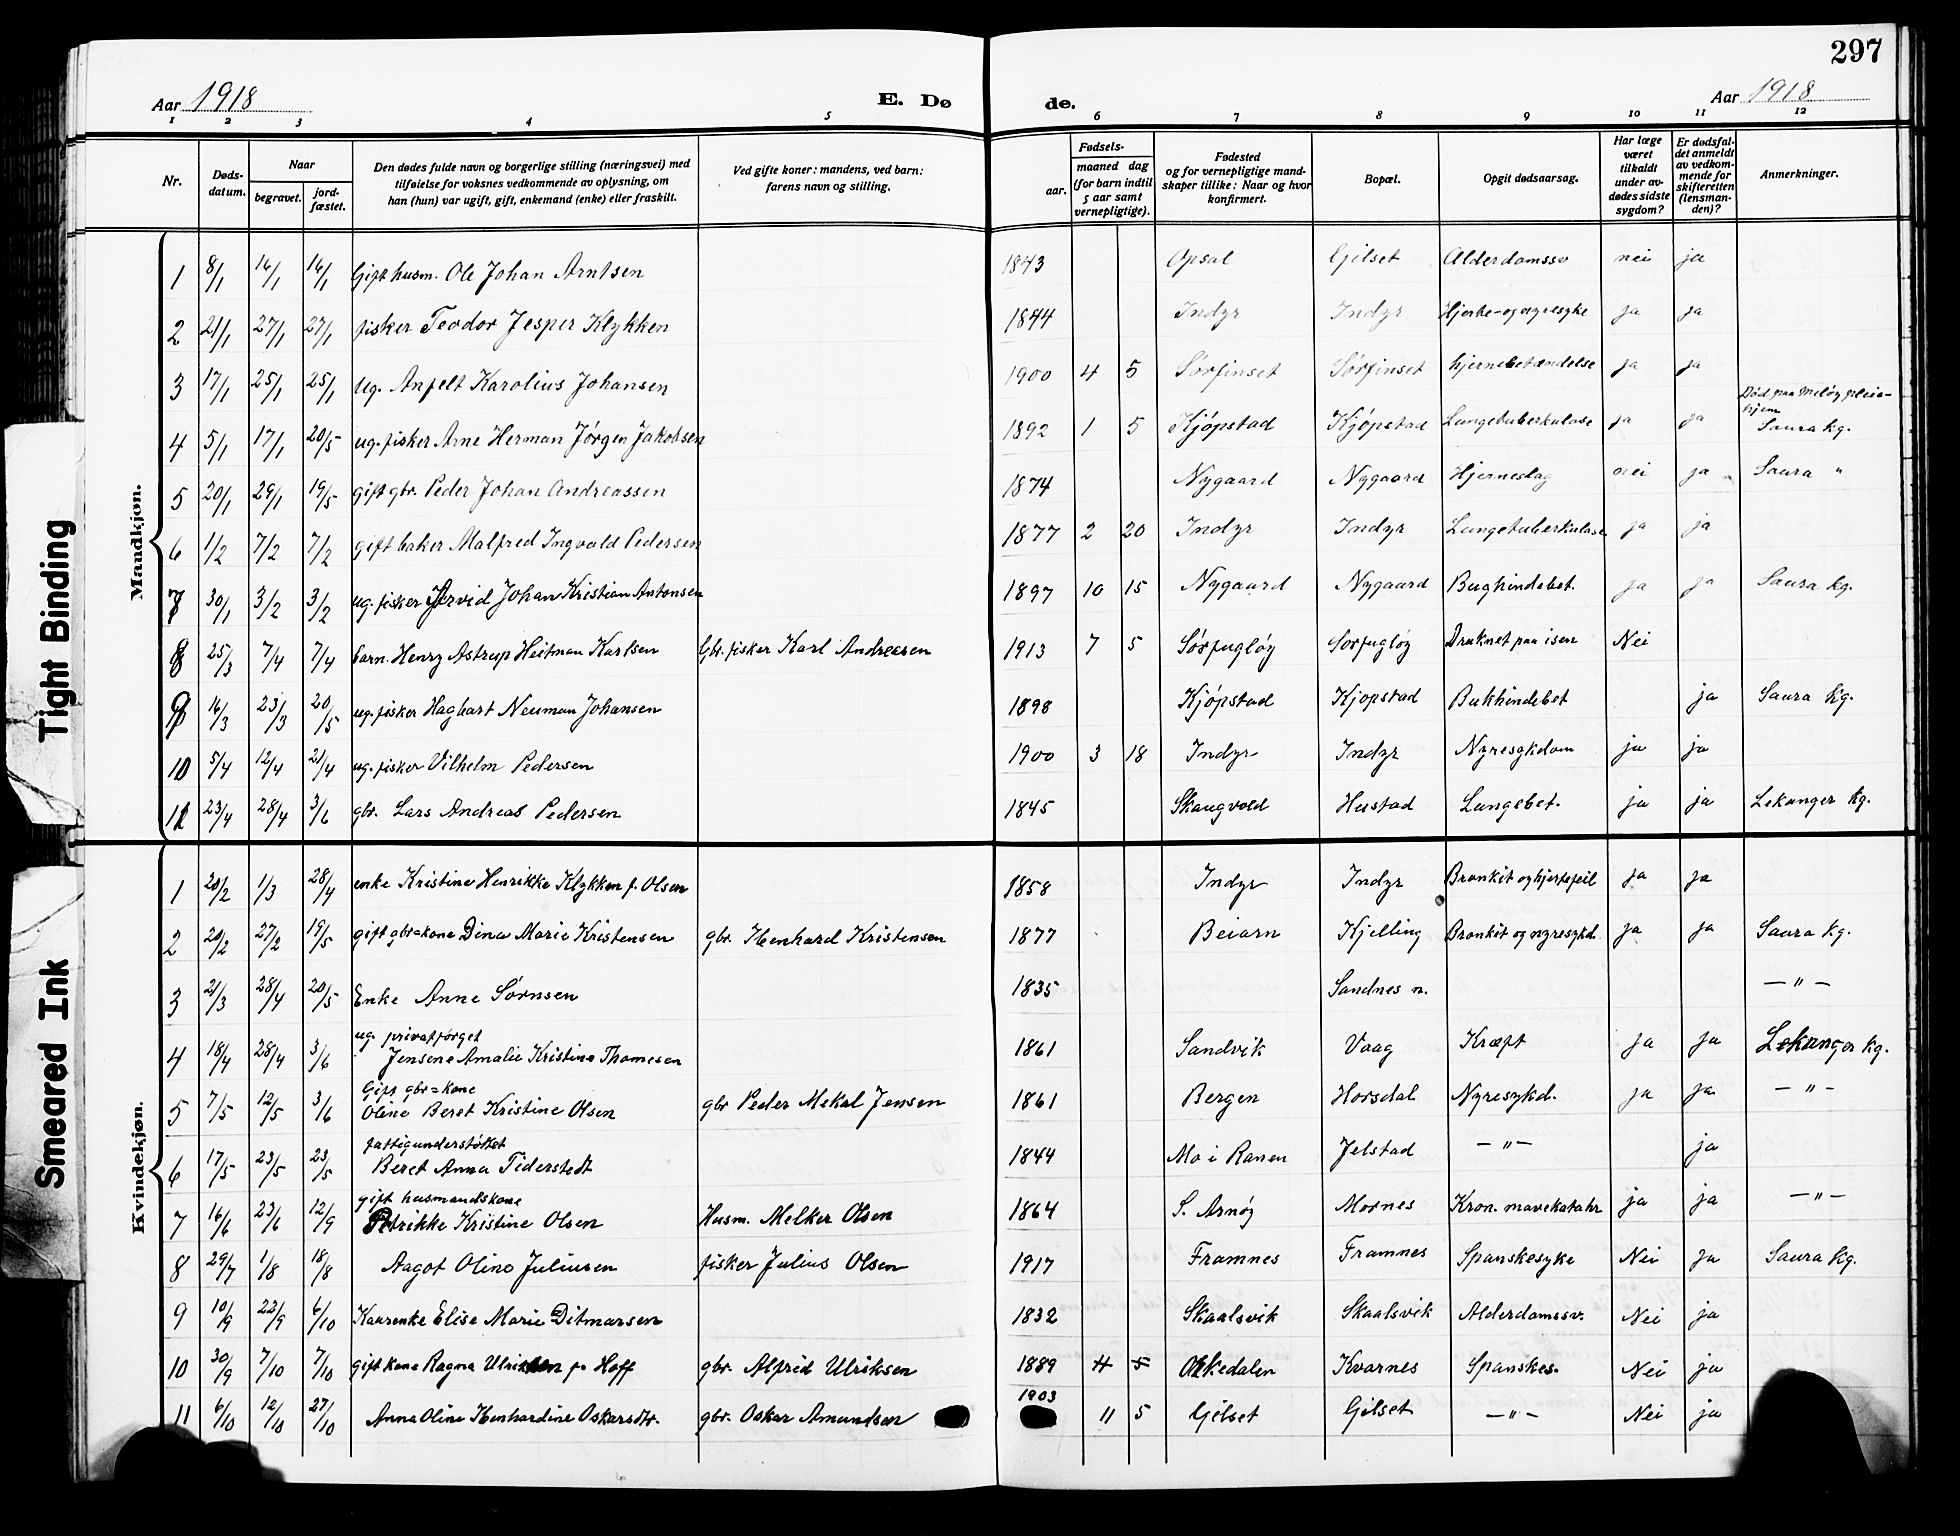 297
Aar 1918 E. Dø de. Aar 1918
1 2 3 4 5 6 7 8 9 10 11 12
Nr. Døds-datum. Naar begravet. jord-fæstet. Den dødes fulde navn og borgerlige stilling (næringsvei) med tilføielse for voksnes vedkommende av oplysning, om han (hun) var ugift, gift, enkemand (enke) eller fraskilt. Ved gifte koner: mandens, ved barn: farens navn og stilling. Fødsels- aar. maaned dag (for barn indtil 5 aar samt vernepligtige). Fødested og for vernepligtige mand-skaper tillike: Naar og hvor konfirmert. Bopæl. Opgit dødsaarsag. Har læge været tilkaldt under av-dødes sidste sygdom? Er dødsfal-det anmeldt av vedkom-mende for skifteretten (lensman-den)? Anmerkninger.
Mandkjøn.
1 8/1 16/1 16/1 Gift husm. Ole Johan Arntsen 1843 Opsal Gilset Alderdomssv nei ja
2 21/1 27/1 27/1 fisker Teodor Jesper Klykken 1844 Indyr Indyr Hjerte- og nyresyke ja ja
3 17/1 25/1 25/1 ug. Anfelt Karolius Johansen 1900 4 5 Sørfinset Sørfinset hjernebetændelse ja ja
Død paa Meløy pleie-hjem
4 5/1 17/1 20/5 ug. fisker Arne Herman Jørgen Jakobsen 1892 1 5 Kjøpstad Kjøpstad Lungetuberkulose ja ja Saura kg.
5 20/1 29/1 19/5 gift gbr. Peder Johan Andreassen 1874 Nygaard Nygaard Hjerneslag nei ja Saura "
6 1/2 7/2 7/2 gift baker Malfred Ingvold Pedersen 1877 2 20 Indyr Indyr Lungetuberkulose ja ja
7 30/1 3/2 3/2 ug. fisker Arvid Johan Kristian Antonsen 1897 10 15 Nygaard Nygaard Bughindebet. ja ja Saura kg.
8 25/3 7/4 7/4 barn. Henry Astrup Heitman Karlsen Gbr. fisker Karl Andresen 1913 7 5 Sørfugløy Sørfugløy Druknet paa isen Nei
9 16/3 23/3 20/5 ug. fisker Hagbart Neuman Johansen 1898 Kjøpstad Kjøpstad Bukhindebet ja Saura kg.
10 5/4 12/4 21/4 ug. fisker Vilhelm Pedersen 1900 3 18 Indyr Indyr Nyresykdom ja ja
11 23/4 28/4 3/6 gbr. Lars Andreas Pedersen 1845 Skaugvold Hustad Lungebet. ja ja Lekanger kg.
Kvindekjøn.
1 20/2 1/3 28/4 enke Kristine Henrikke Klykken f. Olsen 1858 Indyr Indyr Bronkit og hjertefeil ja ja
2 20/2 27/2 19/5 gift gbr=kone Dina Marie Kristensen gbr. Henhard Kristensen 1877 Beiarn Kjelling Bronkit og nyresykd. ja ja Saura kg.
3 21/3 28/4 20/5 Enke Anne Sørnsen 1835 Sandnes n. — " —
ug. privatforget
4 18/4 28/4 3/6 Jensene Amalie Kristine Thomesen 1861 Sandvik Vaag Kræft ja ja Lekanger kg.
Gift gbr=kone
5 7/5 12/5 3/6 Oline Beret Kristine Olsen gbr Peder Mekal Jensen 1861 Bergen Horsdal Nyresykd. ja ja — " —
fattigunderstøttet
6 17/5 23/5 23/5 Beret Anna Tiderstedt 1844 Mo i Ranen Jelstad — " — ja
gift husmandskone
7 16/6 23/6 12/9 Petrikke Kristine Olsen Husm. Melker Olsen 1864 S. Arnøy Mornes Kron. mavekatahr ja ja — " —
8 29/7 1/8 18/8 Aagot Oline Juliussen fisker Julius Olsen 1917 Framnes Framnes Spanskesyke Nei ja Saura kg.
9 10/9 22/9 6/10 Kaarenke Elise Marie Ditmarsen 1832 Skaalsvik Skaalsvik Alderdomssv. Nei ja
10 30/9 7/10 7/10 gift kone Ragna Ulriksen f. Hoff gbr. Alfred Ulriksen 1889 4 5 Orkedalen Kvarnes Spanskes. Nei ja
11 6/10 12/10 27/10 Anna Oline Henhardine Oskarsdtr. gbr. Oskar Amundsen 1903 11 5 Gilset Gilset — " — Nei ja
Tight Binding
Smeared Ink